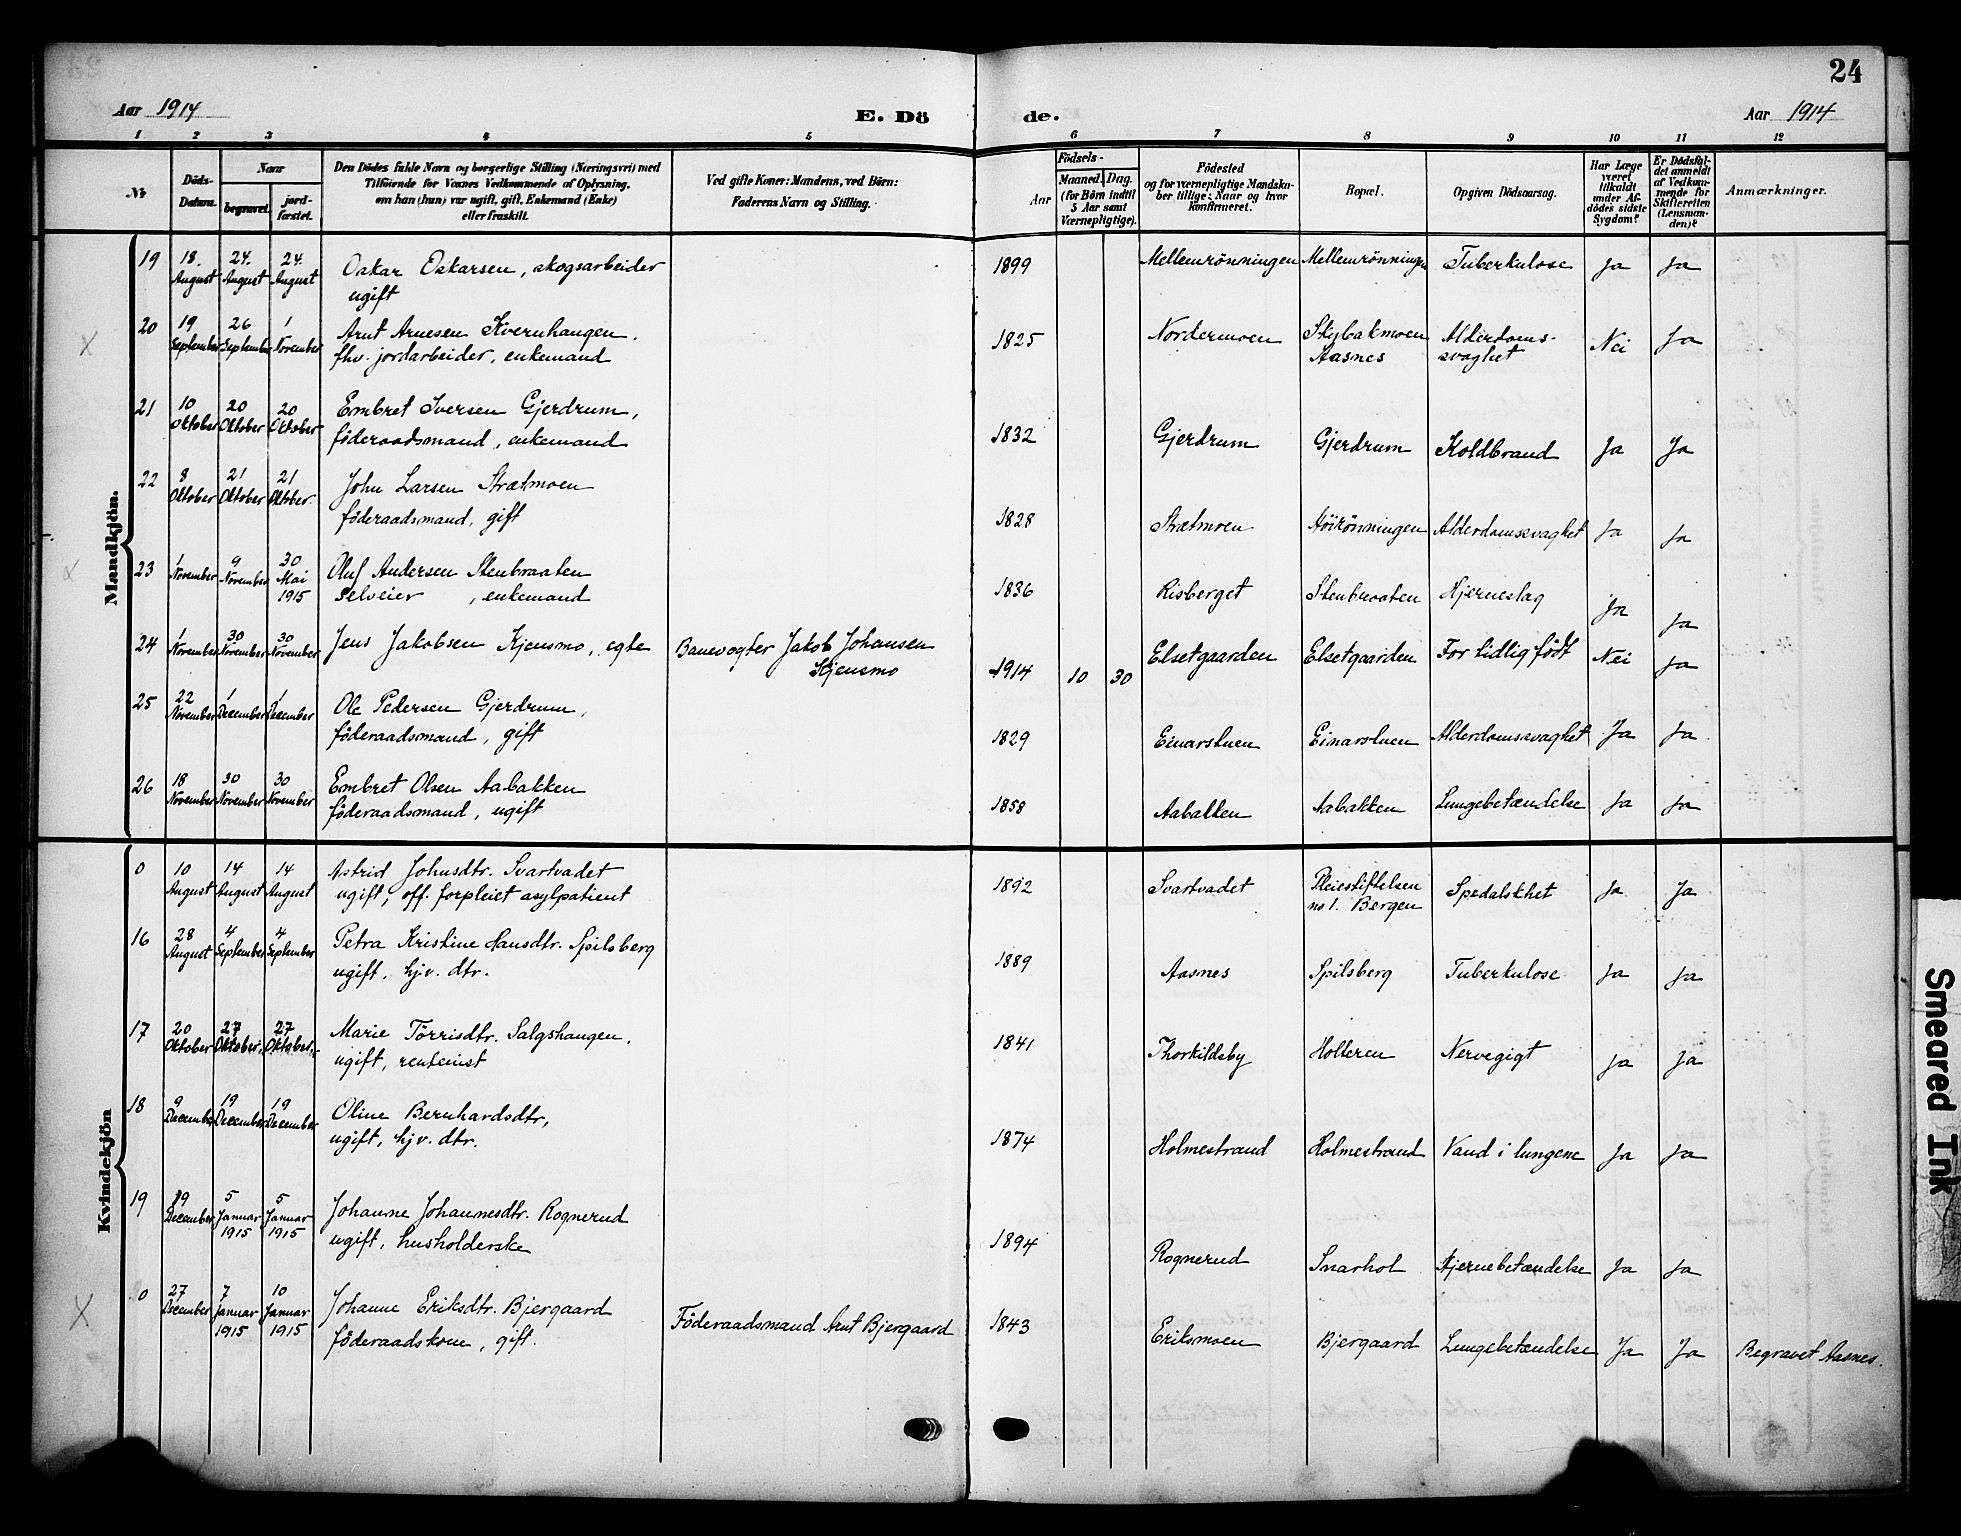 24
Aar 1914
E. Döde.
Aar 1914
1 2 3 4 5 6 7 8 9 10 11 12
No
Döds-Datum.
Naar
begravet.
jordfæstet.
Den Dödes fulde Navn og borgerlige Stilling (Næringsvei) med
Tilföiende for Voxnes Vedkommende af Oplysning,
om han (hun) var ugift, gift, Enkemand (Enke)
eller fraskilt.
Ved gifte Koner: Mandens, ved Börn:
Faderens Navn og Stilling.
Födsels-
Aar
Maaned. Dag.
(for Börn indtil
5 Aar samt
Værnepligtige).
Födested
og for værnepligtige Mandskaber tillige: Naar og hvor
konfirmeret.
Bopæl.
Opgiven Dödsaarsag.
Har Læge
været
tilkaldt
under Afdödes sidste
Sygdom?
Er Dödsfaldet anmeldt
af Vedkommende for
Skifteretten
(Lensmanden)?
Anmærkninger.
Mandkjön.
19 18. August 24. August 24. August Oskar Oskarsen, skogsarbeider 1899 Mellemrönningen Mellemrönningen Tuberkulose Ja Ja
ugift
20 19 September 26 September 1 November Arnt Arnesen Kvernhaugen, 1825 Nordermoen Skybakmoen Alderdoms- Nei Ja
fhv. jordarbeider, enkemand Aasnes svaghet
21 10 Oktober 20 Oktober 20 Oktober Embret Iversen Gjerdrum, 1832 Gjerdrum Gjerdrum Koldbrand Ja Ja
föderaadsmand, enkemand
22 8 Oktober 21 Oktober 21 Oktober. John Larsen Strætmoen 1828 Strætmoen Höirönningen Alderdomssvaghet Ja Ja
föderaadsmand, gift
23 1 November 9 November 30 Mai 1915 Oluf Andersen Stenbraaten 1836 Risberget Stenbraaten Hjerneslag Ja Ja
selveier, enkemand
24 1 November 30 November 30 November Jens Jakobsen Kjensmo, egte Banevogter Jakob Johansen 1914 10 30 Elsetgaarden Elsetgaarden For tidlig födt Nei Ja
Kjensmo
25 22 November 1 December 1 December Ole Pedersen Gjerdrum, 1829 Einarstuen Einarstuen Alderdomssvaghet Ja Ja
föderaadsmand, gift
26 18 November 30 November 30 November Embret Olsen Aabakken 1858 Aabakken Aabakken Lungebetændelse Ja Ja
föderaadsmand, ugift
Kvindekjön
0 10 August 14 August 14 August Astrid Johnsdtr. Svartvadet 1892 Svartvadet Pleiestiftelsen Spedalskhet Ja Ja
ugift, off. forpleiet asylpatient no 1. Bergen
16 28 August 4 September 4 September Petra Kristine Hansdtr. Spilsberg 1889 Aasnes Spilsberg Tuberkulose Ja Ja
ugift, hjv. dtr.
17 20 Oktober 27 Oktober. 27 Oktober. Marie Törrisdtr. Salgshaugen, 1841 Thorkildsby Holteren Nervegigt Ja Ja
ugift, rentenist
18 9 December 19 December 19 December Oline Bernhardsdtr, 1874 Holmestrand Holmestrand Vand i lungene Ja Ja
ugift, hjv. dtr.
19 19 December 5 Januar 1915 5 Januar 1915 Johanne Johannesdtr. Rognerud 1894 Rognerud Snarhol Hjernebetændelse Ja Ja
ugift, husholderske
0 27 December 7 Januar 1915 10 Januar 1915 Johanne Eriksdtr. Bjergaard Föderaadsmand Arnt Bjergaard 1843 Eriksmoen Bjergaard Lungebetændelse Ja Ja Begravet Aasnes.
föderaadskone, gift.
Smeared Ink